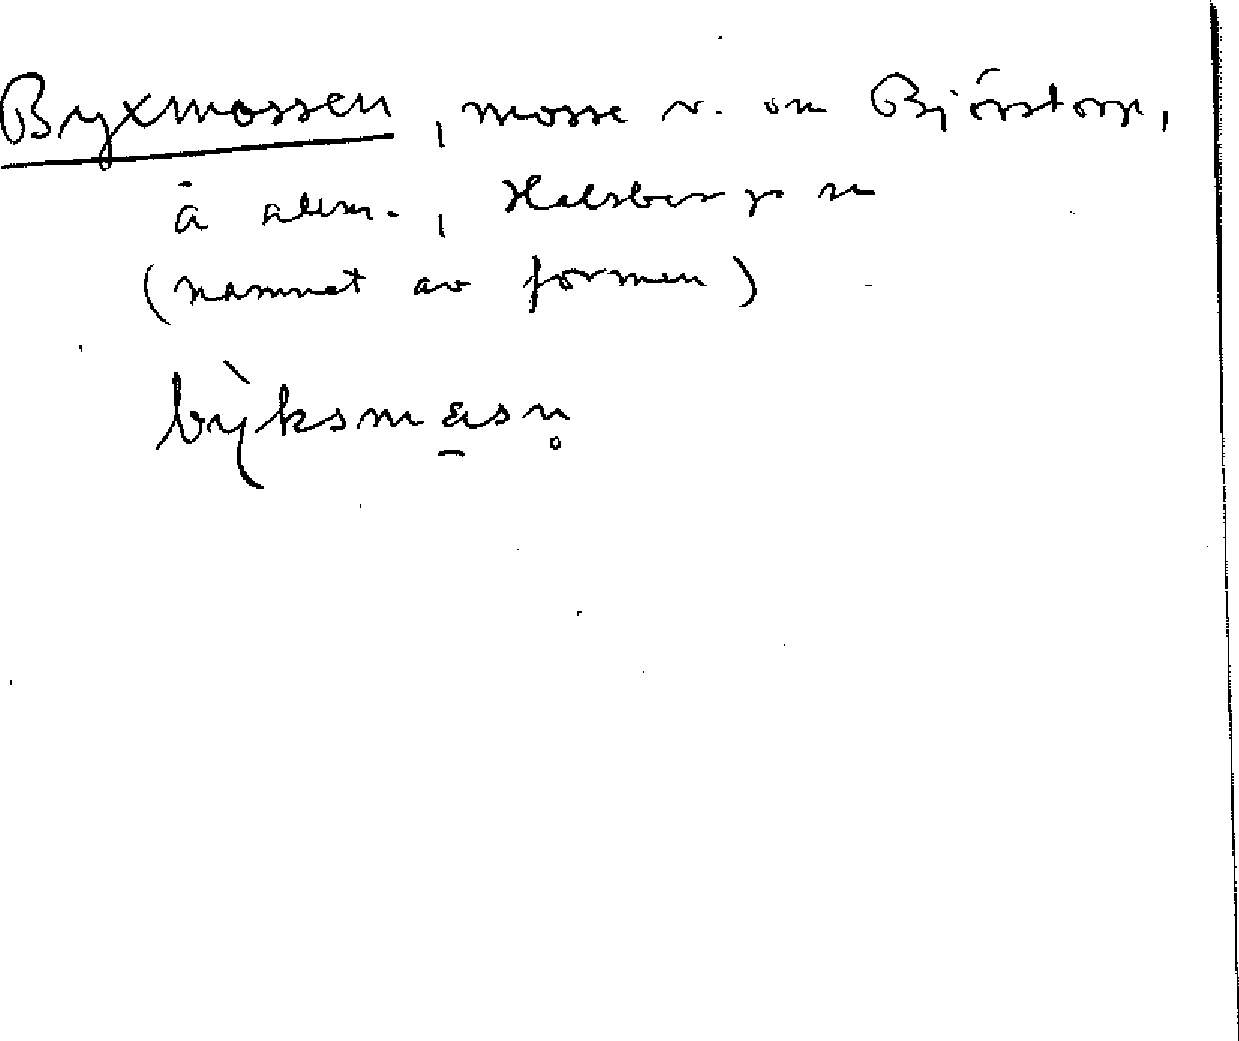 Byxmossen, mosse v. om Björstorp,
å allm., Halsberg sn
(namnet av formen)
bỳksmåsn̥